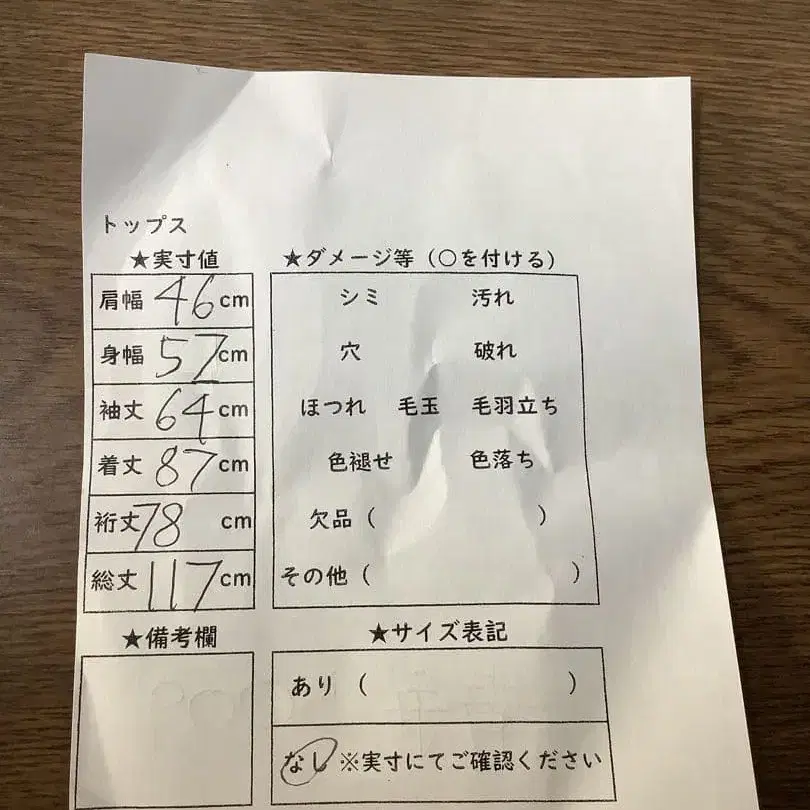 トップス
★実寸値
肩幅 46cm
身幅 57cm
袖丈 64cm
着丈 87cm
裄丈 78 cm
総丈 117cm
★ダメージ等（○を付ける）
シミ 汚れ
穴 破れ
ほつれ 毛玉 毛羽立ち
色褪せ 色落ち
欠品（ ）
その他（ ）
★備考欄
★サイズ表記
あり（ ）
なし ※実寸にてご確認ください